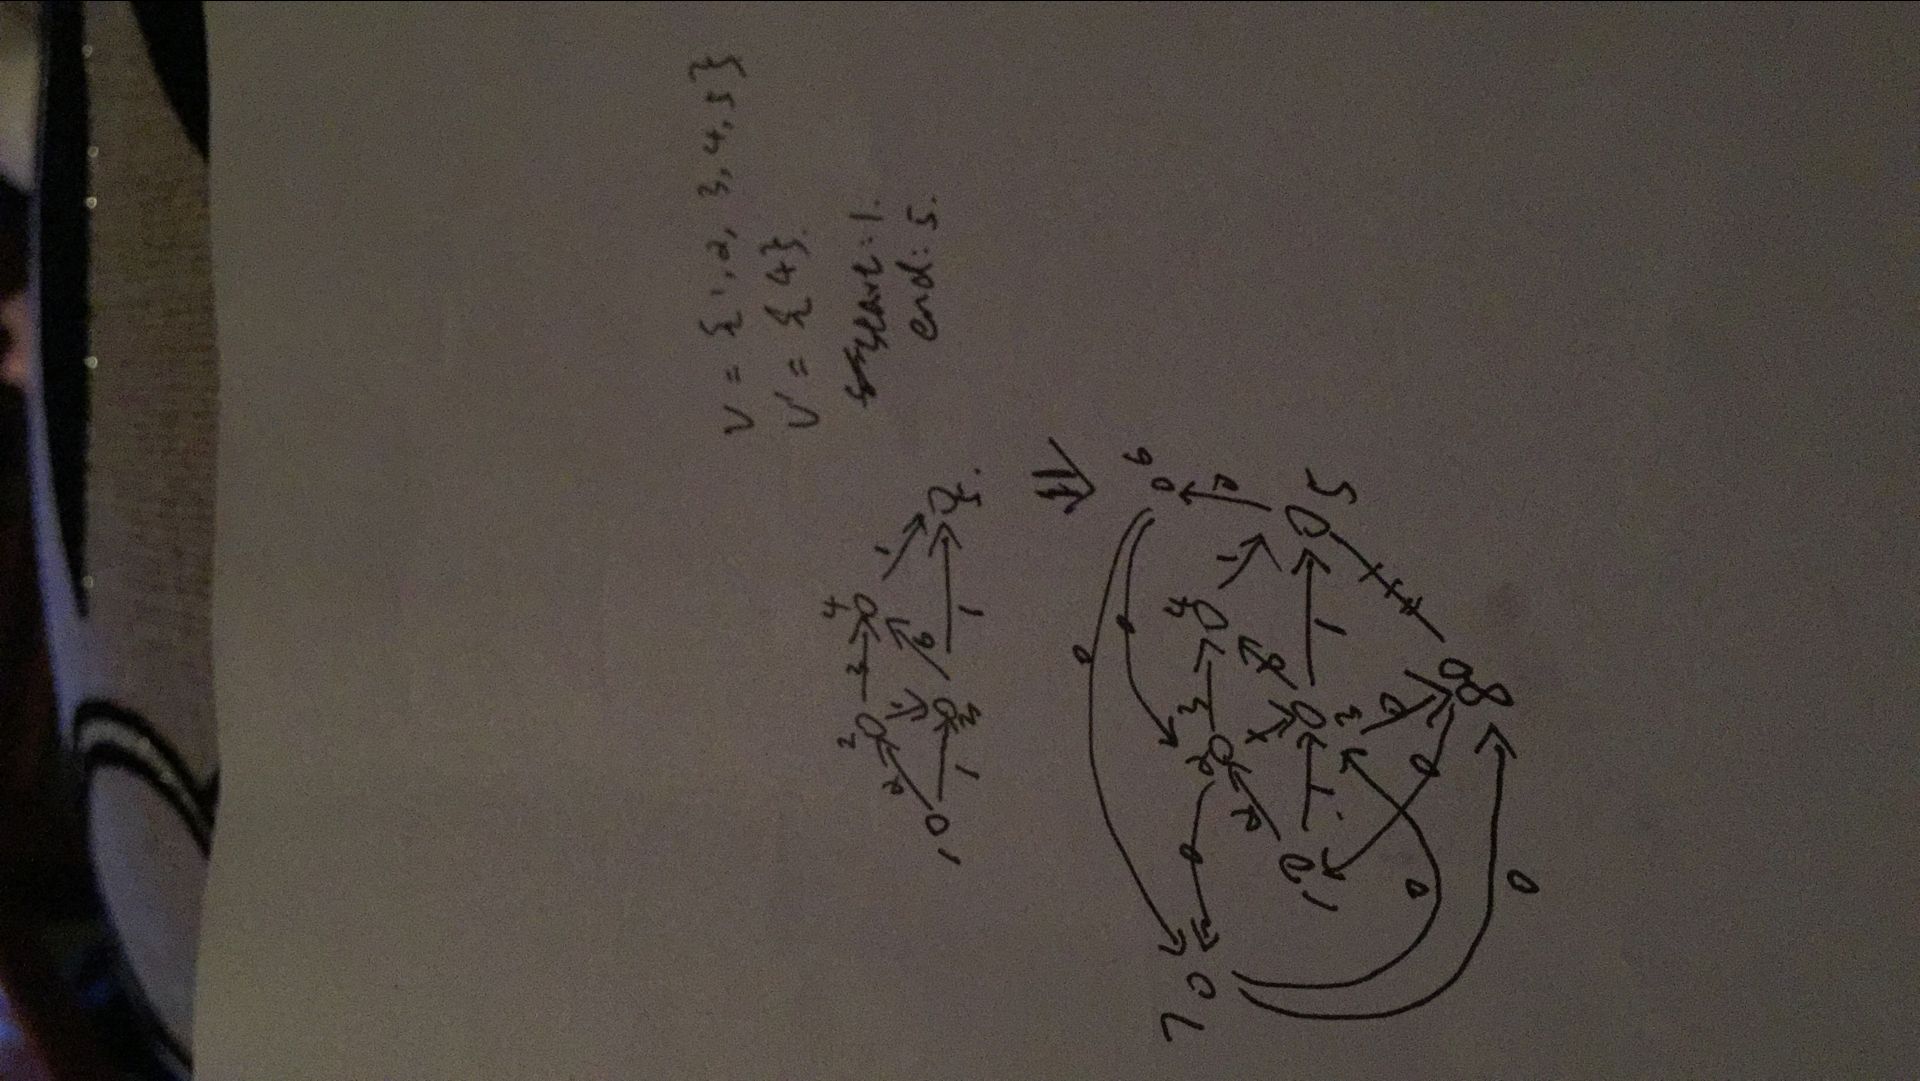 V = {1, 2, 3, 4, 5}
V' = {4}.
start: 1.
end: 5.
2 4
2 3 1 1
1 6
1 3 1 5.
0
0 6
7 0 2 3 4
2 1 0
1 1 1 5
3
0 0 0
8
0